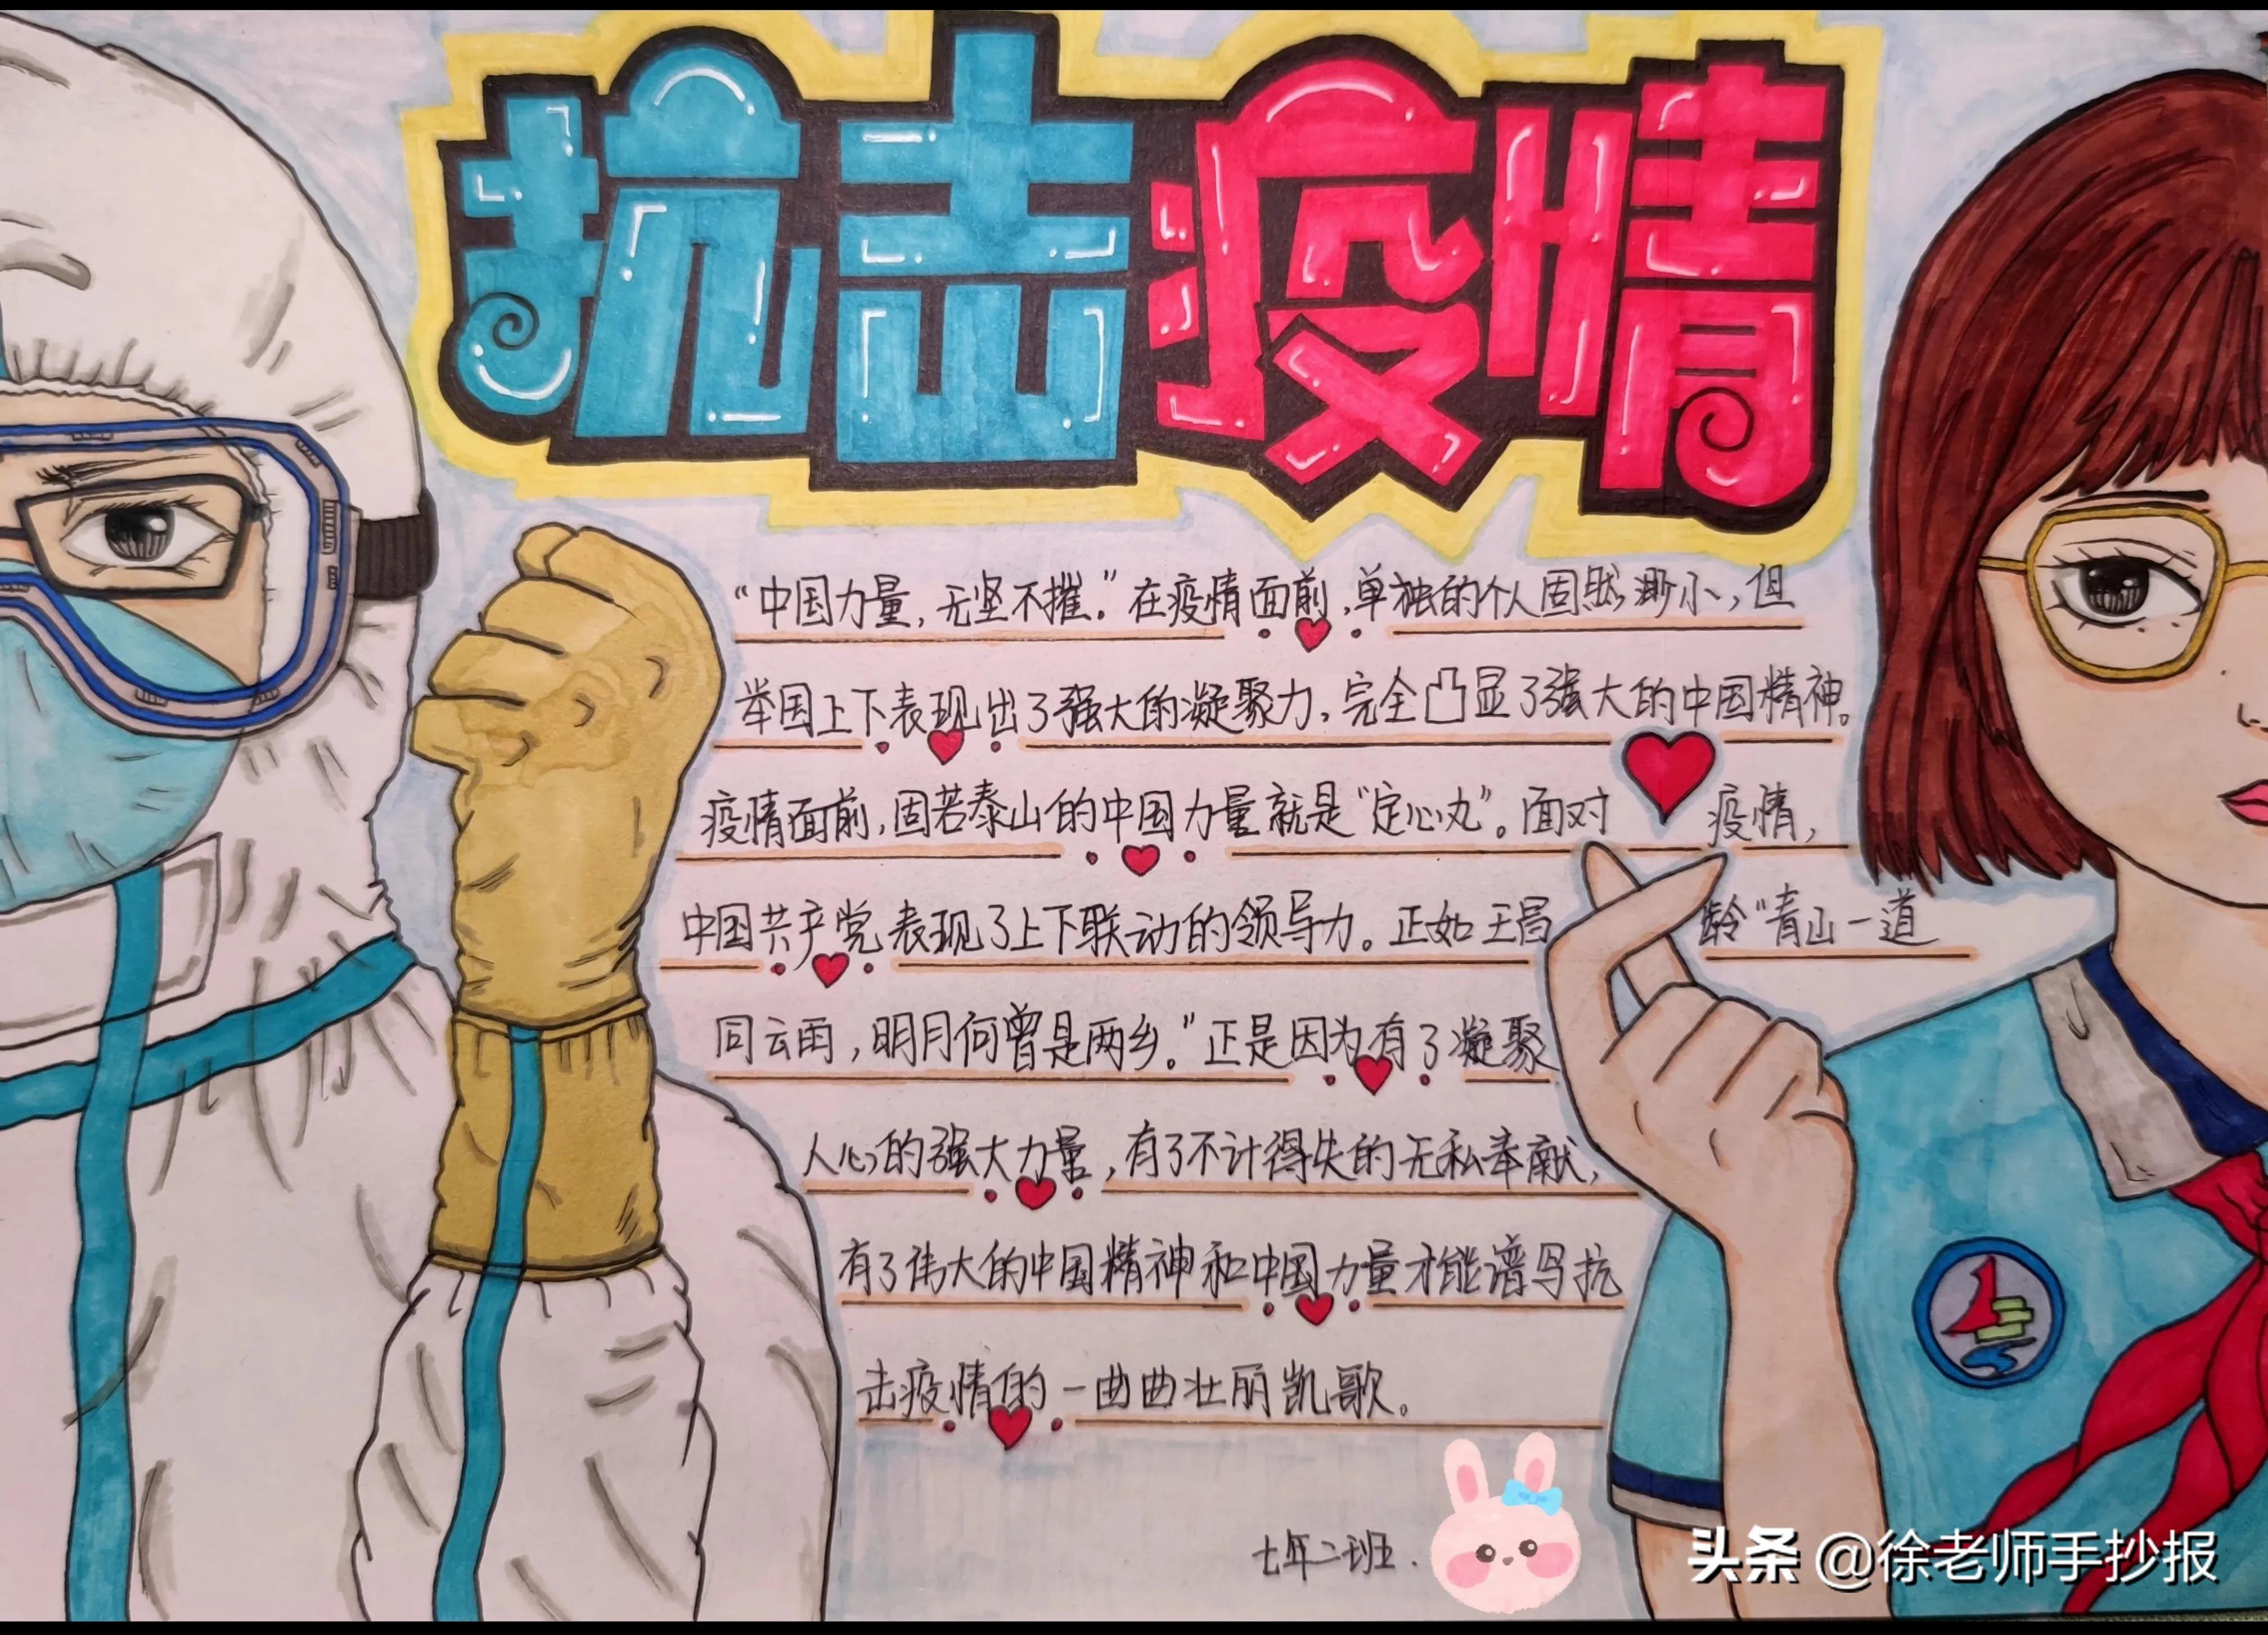 抗击疫情
“中国力量，无坚不摧.”在疫情面前，单独的个人固然渺小，但
举国上下表现出了强大的凝聚力，完全凸显了强大的中国精神。
疫情面前，固若泰山的中国力量就是“定心丸”。面对疫情，
中国共产党表现了上下联动的领导力。正如王昌龄“青山一道
同云雨，明月何曾是两乡。”正是因为有了凝聚
人心的强大力量，有了不计得失的无私奉献，
有了伟大的中国精神和中国力量才能谱写抗
击疫情的一曲曲壮丽凯歌。
七年二班.
头条 @徐老师手抄报